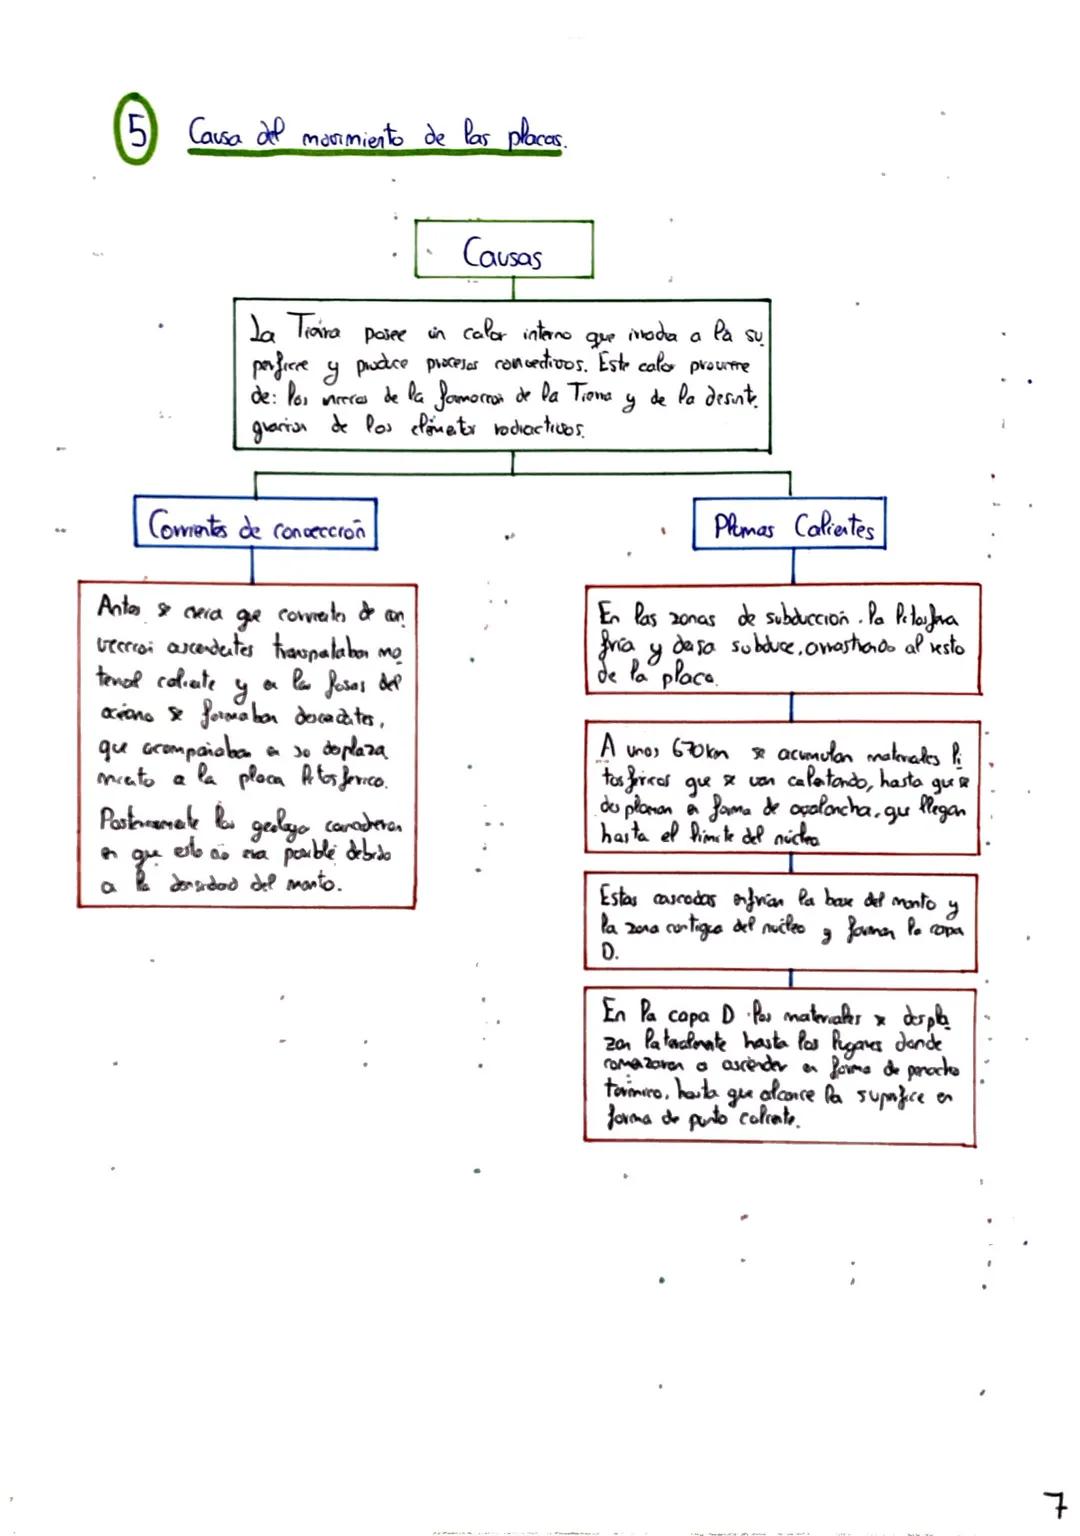 5 Causa del movimiento de las placas.
Causas
La Tierra posee un calor interno que irradia a la su
perficie y produce procesos convectivos. Este calor proviene
de: los inicios de la formación de la Tierra y de la desinte
gración de los elementos radiactivos.
Corrientes de convección
Plumas Calientes
Antes se creía que corrientes de con
vección ascendentes transportaban ma
terial caliente y en las fosas del
océano se formaban descendentes,
que acompañaban en su desplaza
miento a la placa litosférica.
Posteriormente los geólogos consideraron
en que esto no era posible debido
a la densidad del manto.
En las zonas de subducción. la litosfera
fría y densa subduce, arrastrando al resto
de la placa.
A unos 670km se acumulan materiales li
tosféricos que se van calentando, hasta que se
desploman en forma de avalancha, que llegan
hasta el límite del núcleo
Estas cascadas enfrían la base del manto y
la zona contigua del núcleo y forman la capa
D.
En la capa D los materiales se despla
zan lateralmente hasta los lugares donde
comenzaron a ascender en forma de penacho
térmico, hasta que alcance la superficie en
forma de punto caliente.
7